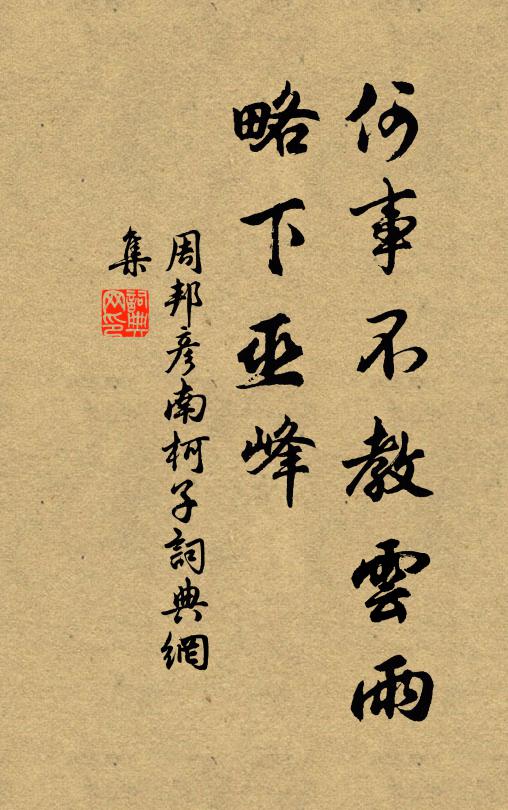 何事不教雲雨
略下巫峰
周邦彥南柯子詞典網
集
詞典网印